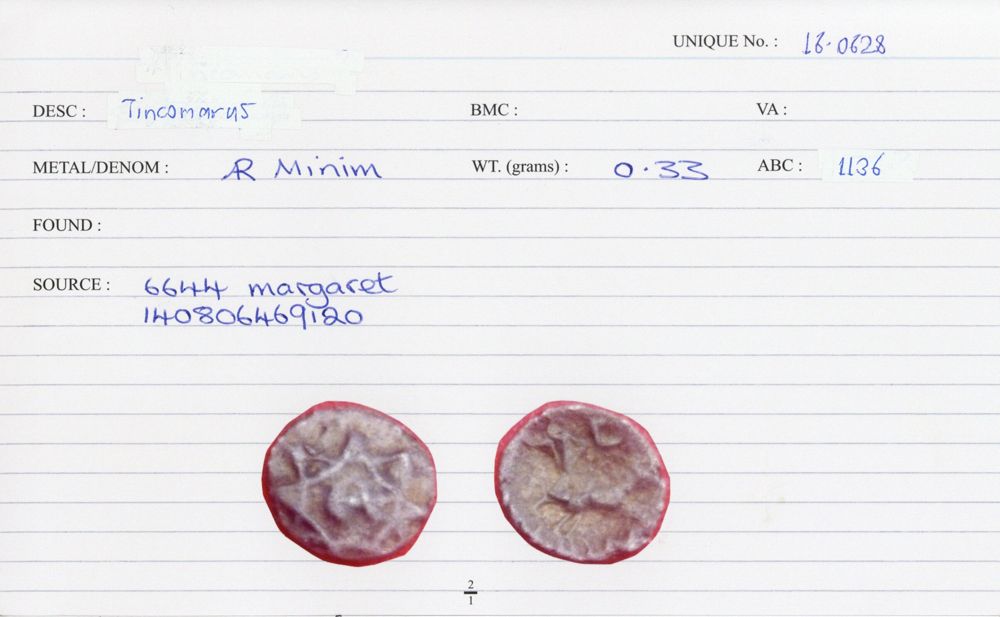 UNIQUE No. : 16-0628
DESC : Tincomarus BMC : VA :
METAL/DENOM : AR Minim WT. (grams) : 0.33 ABC : 1136
FOUND :
SOURCE : 6644 margaret
140806469120
2
1